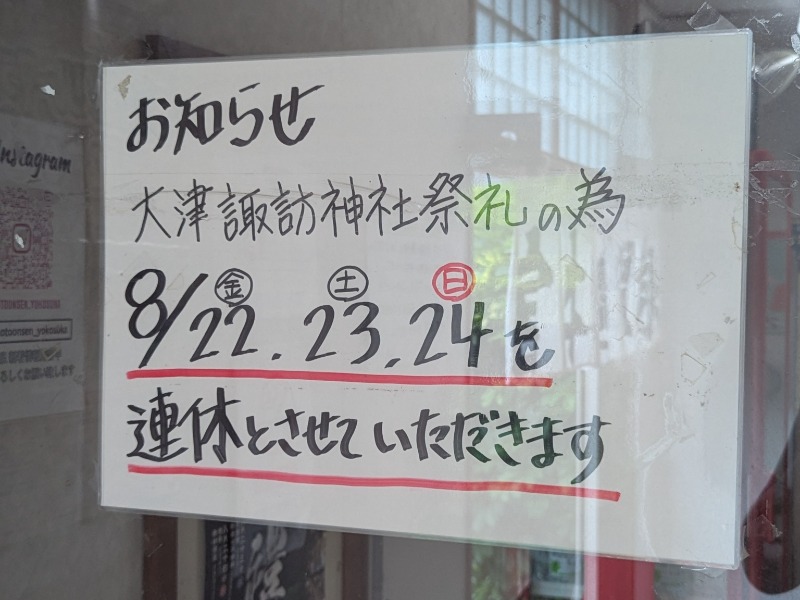 お知らせ
大津諏訪神社祭礼の為
8/22㊎.23㊏.24㊐を
連休とさせていただきます
Instagram